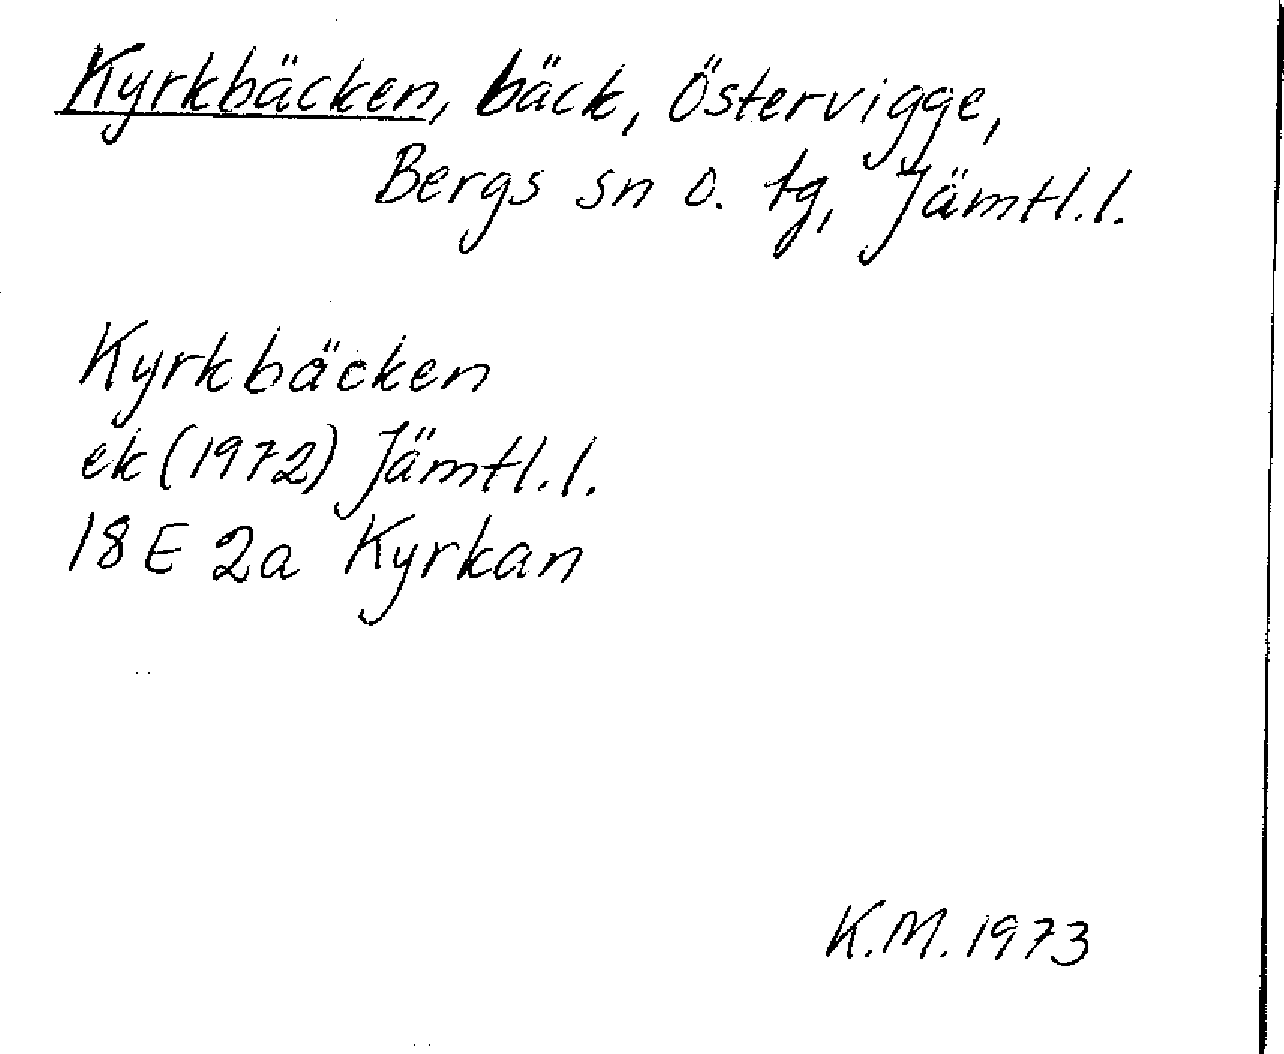 Kyrkbäcken, bäck, Östervigge,
Bergs sn o. tg, Jämtl.l.
Kyrkbäcken
ek (1972) Jämtl.l.
18E 2a Kyrkan
K.M. 1973